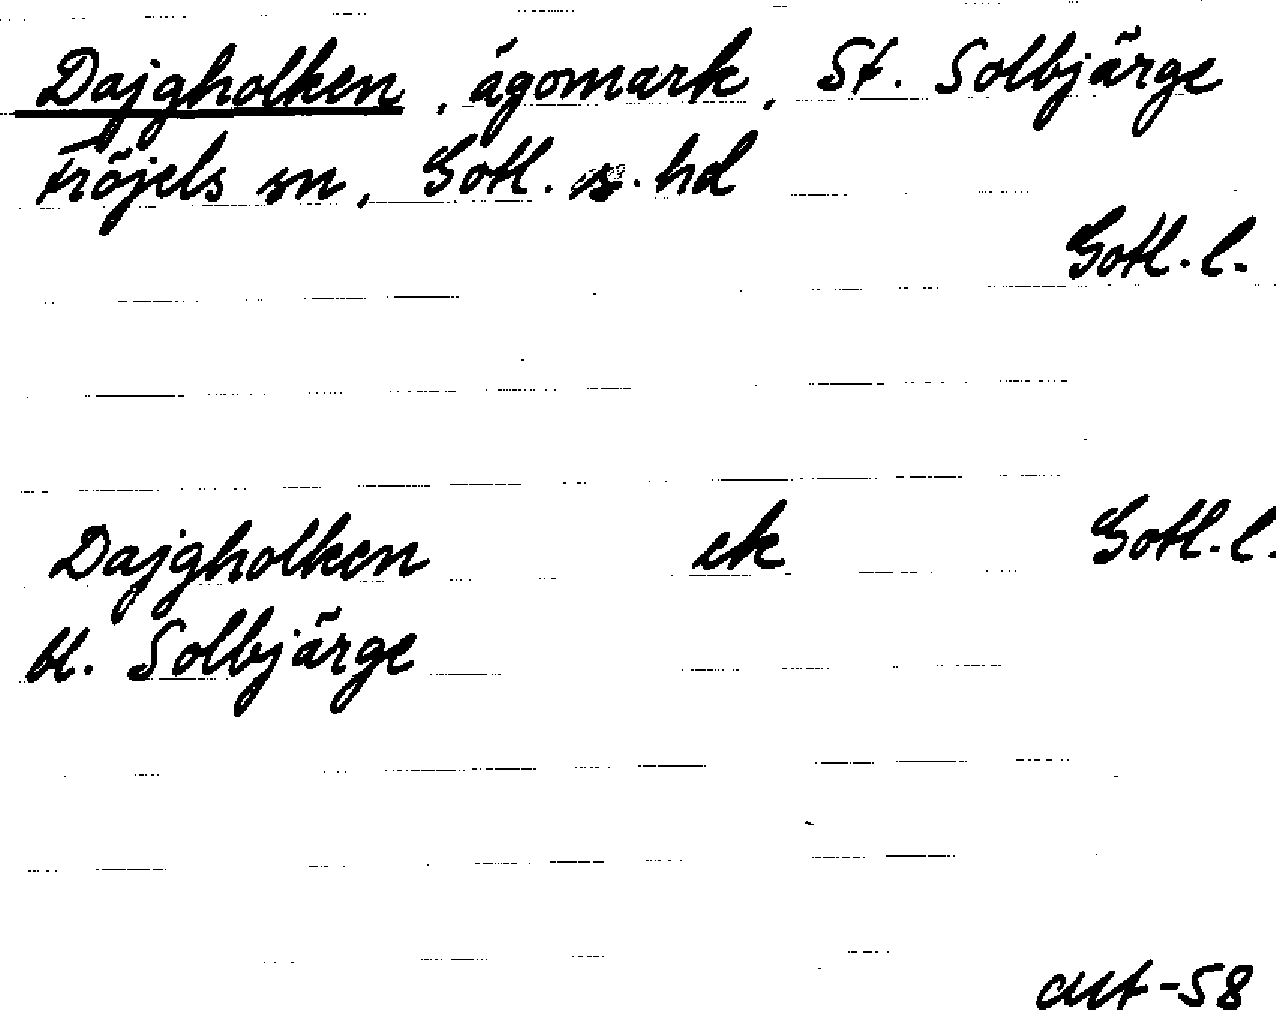 Dajgholken, ägomark, St. Solbjärge
Fröjels sn, Gotl. s. hd
Gotl. l.
Dajgholken ek Gotl. l.
bl. Solbjärge
-58